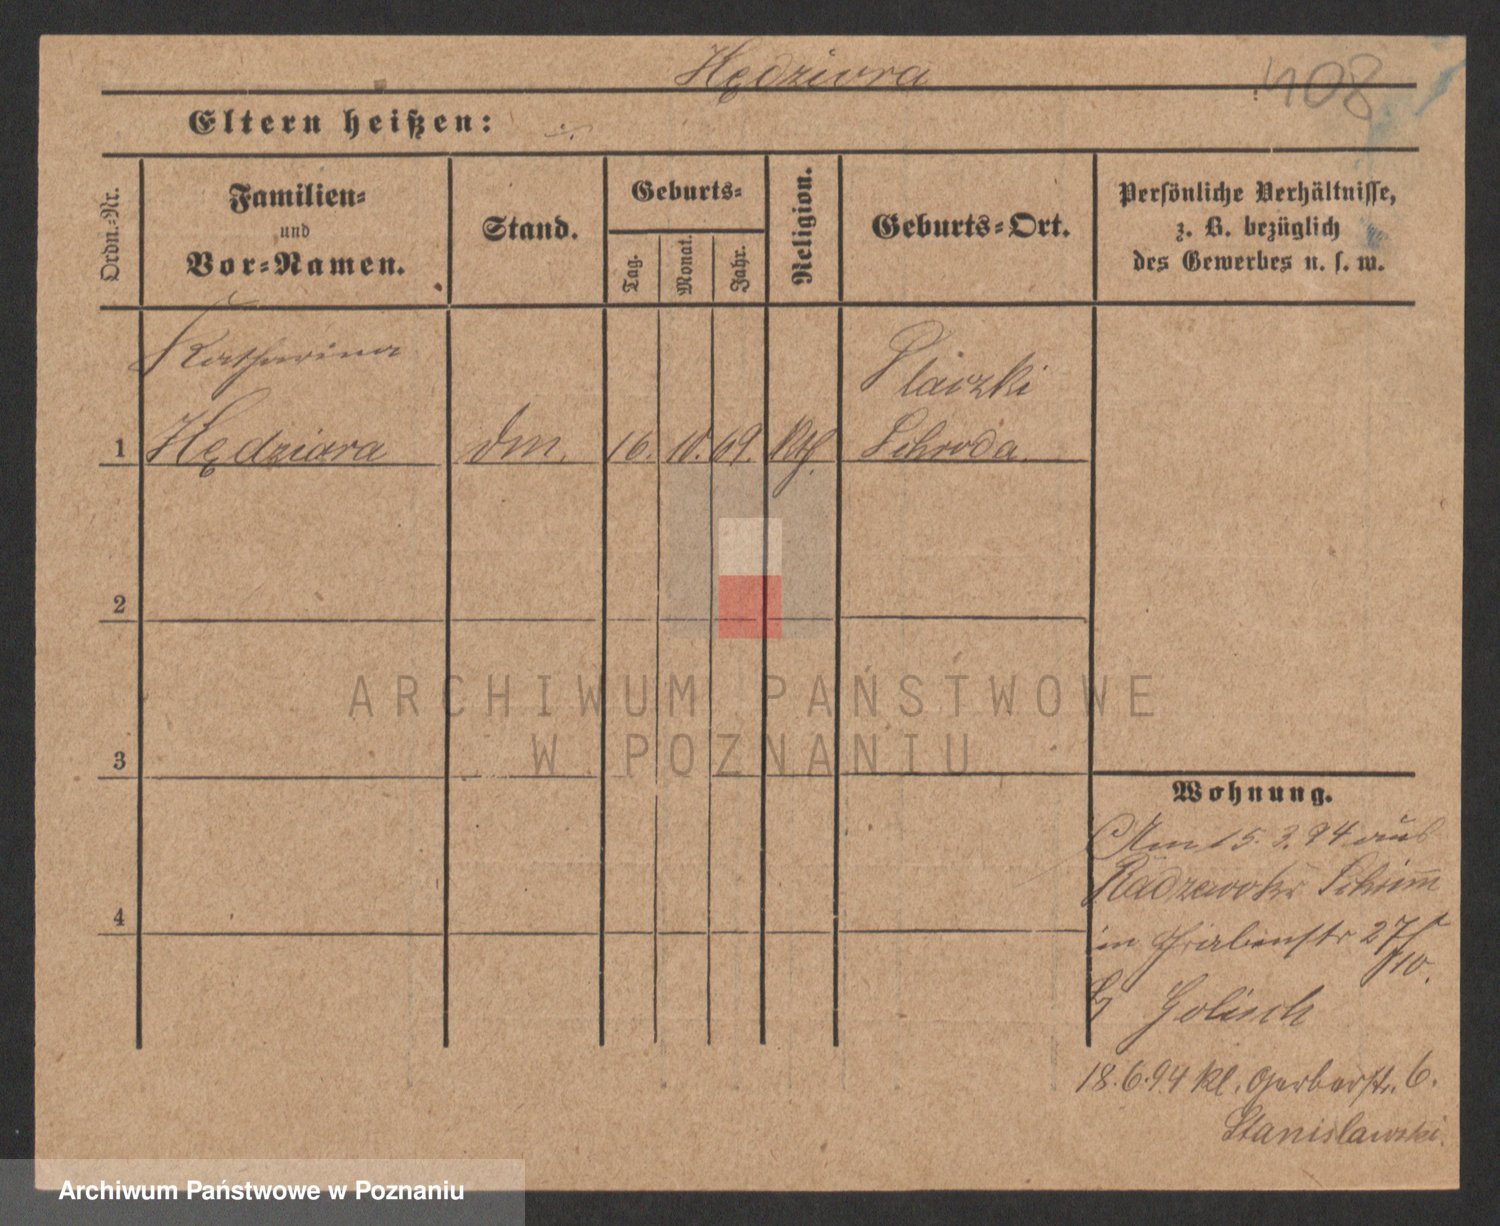 Hędziora
408
Eltern heißen:
Ordn.-Nr.
Familien-
und
Vor-Namen.
Stand.
Geburts-
Tag.
Monat.
Jahr.
Religion.
Geburts-Ort.
Persönliche Verhältnisse,
z. B. bezüglich
des Gewerbes u. s. w.
Katharina
Placzki
1 Hędziara dm. 16. 10. 69. Kth. Schroda.
2
3
4
Wohnung.
Am 15.3.94 aus
Schrimm
in Grabenstr 27/
10.
Golisch
18.6.94 Kl. Gerberstr. 6.
Stanislawski.
ARCHIWUM PAŃSTWOWE
W POZNANIU
Archiwum Państwowe w Poznaniu